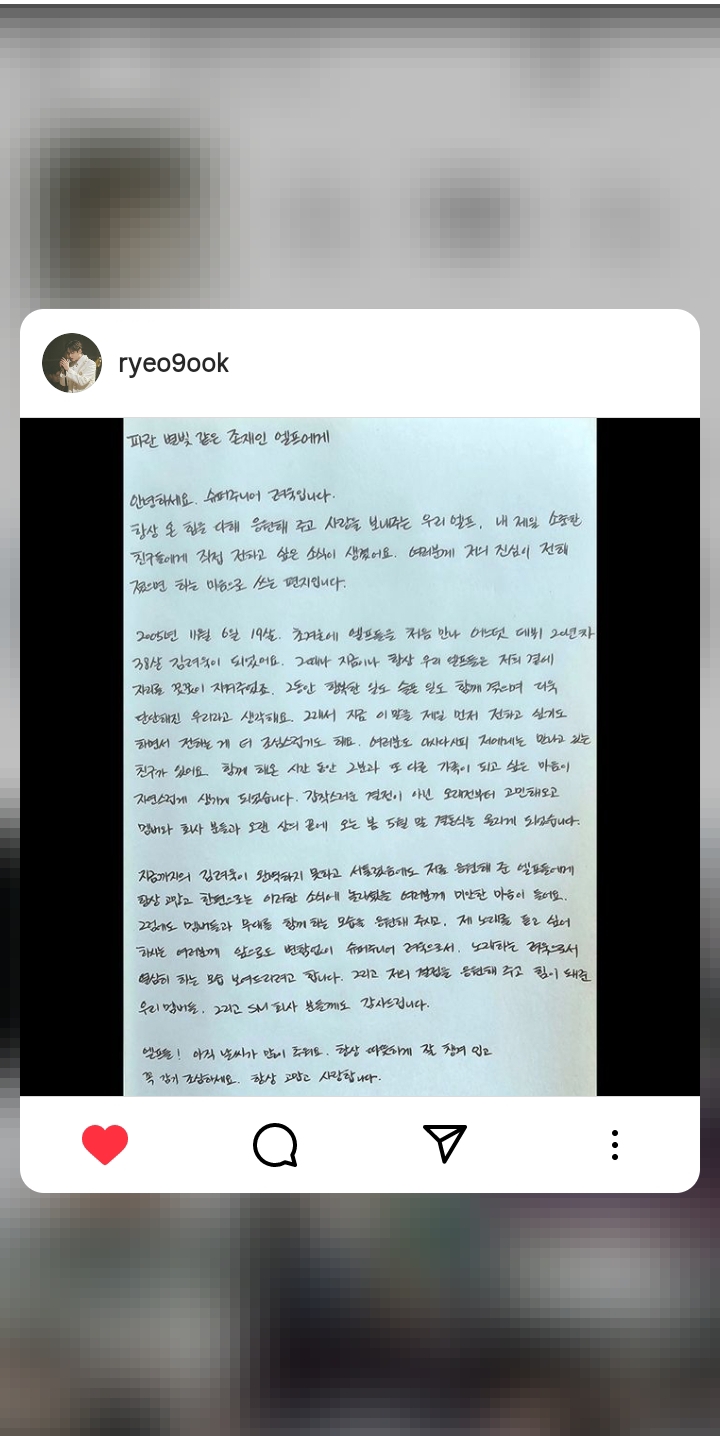 ryeo9ook
파란 별빛 같은 존재인 엘프에게
안녕하세요. 슈퍼주니어 려욱입니다.
항상 온 힘을 다해 응원해 주고 사랑을 보내주는 우리 엘프, 내 제일 소중한
친구들에게 직접 전하고 싶은 소식이 생겼어요. 여러분께 저의 진심이 전해
졌으면 하는 마음으로 쓰는 편지입니다.
2005년 11월 6일 19살. 초겨울에 엘프들을 처음 만나 어느덧 데뷔 20년차
38살 김려욱이 되었어요. 그때나 지금이나 항상 우리 엘프들은 저의 곁에
자리를 꿋꿋이 지켜주었죠. 그동안 행복한 일도 슬픈 일도 함께 겪으며 더욱
단단해진 우리라고 생각해요. 그래서 지금 이 말을 제일 먼저 전하고 싶기도
하면서 전하는 게 더 조심스럽기도 해요. 여러분도 아시다시피 저에게는 만나고 있는
친구가 있어요. 함께 해온 시간 동안 그분과 또 다른 가족이 되고 싶은 마음이
자연스럽게 생기게 되었습니다. 갑작스러운 결정이 아닌 오래전부터 고민해오고
멤버와 회사 분들과 오랜 상의 끝에 오는 봄 5월 말 결혼식을 올리게 되었습니다.
지금까지의 김려욱이 완벽하지 못하고 서툴렀음에도 저를 응원해 준 엘프들에게
항상 고맙고 한편으로는 이러한 소식에 놀라셨을 여러분께 미안한 마음이 들어요.
그럼에도 멤버들과 무대를 함께 하는 모습을 응원해 주시고, 제 노래를 듣고 싶어
하시는 여러분께 앞으로도 변함없이 슈퍼주니어 려욱으로서, 노래하는 려욱으로서
열심히 하는 모습 보여드리려고 합니다. 그리고 저의 결정을 응원해 주고 힘이 돼준
우리 멤버들, 그리고 SM 회사 분들께도 감사드립니다.
엘프들! 아직 날씨가 많이 추워요. 항상 따뜻하게 잘 챙겨 입고
꼭 감기 조심하세요. 항상 고맙고 사랑합니다.